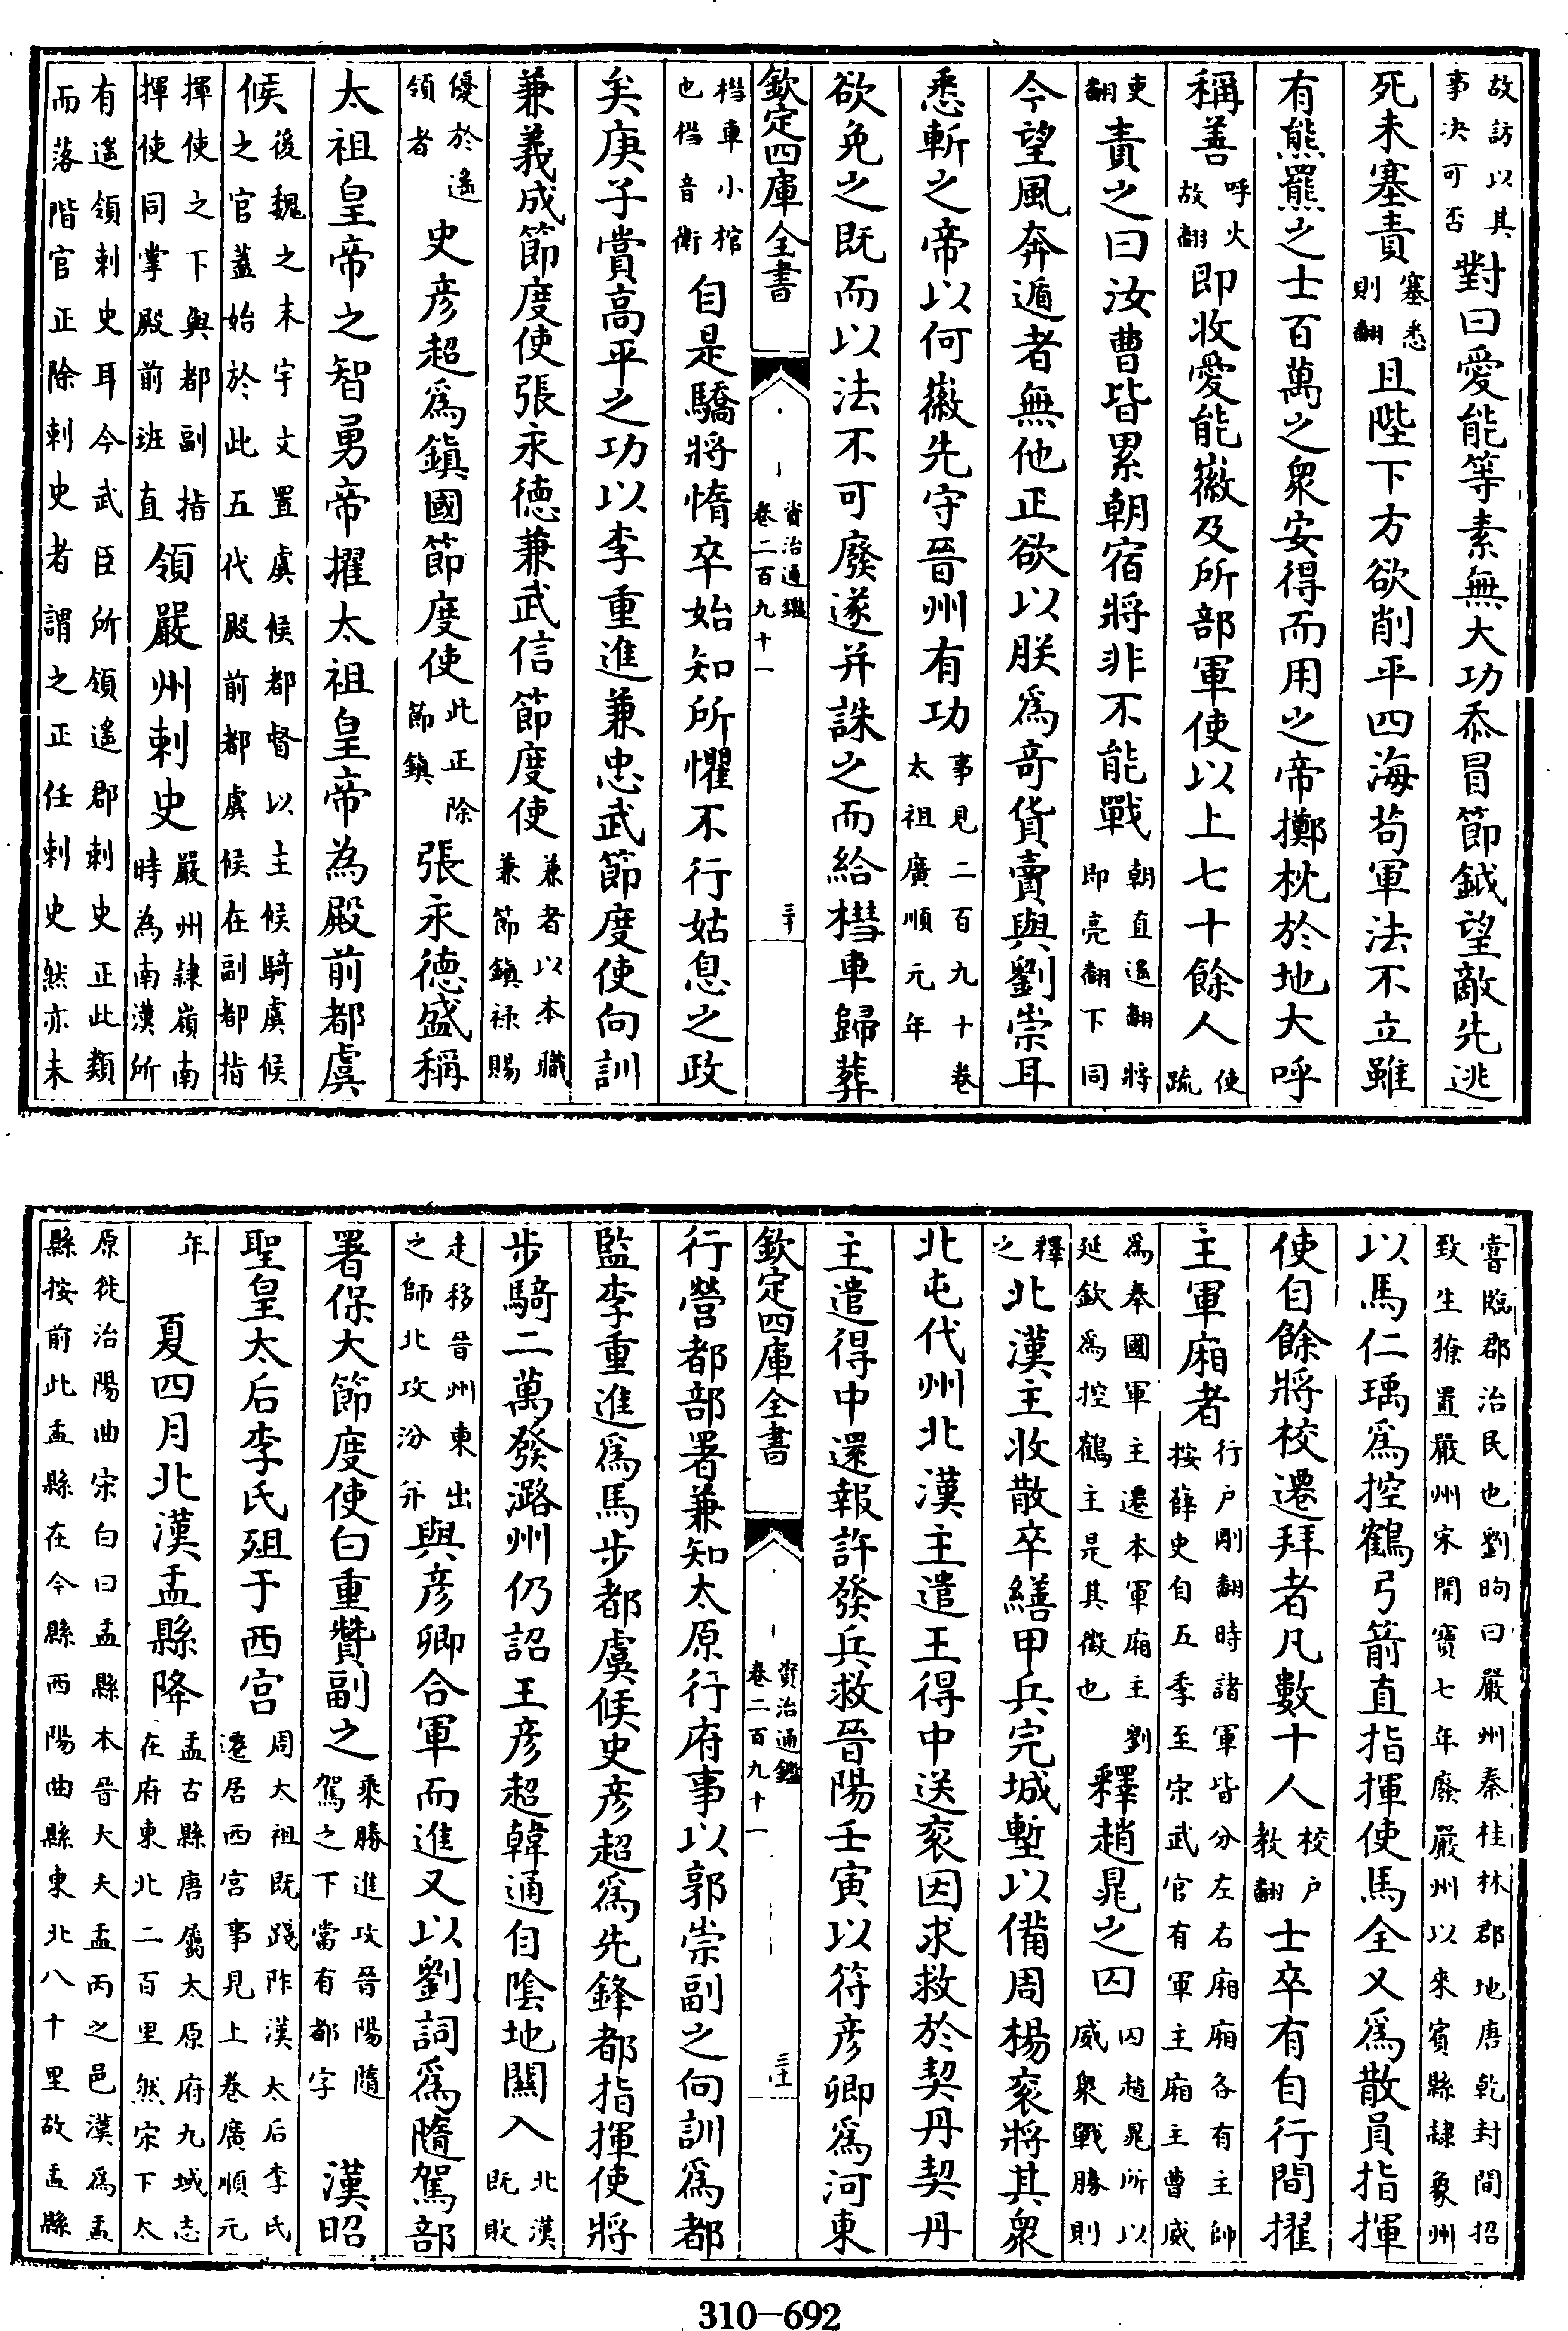 故訪以其事決可否對曰愛能等素無大功忝冒節鉞望敵先逃
死未塞責塞悉則翻且陛下方欲削平四海苟軍法不立雖
有熊羆之士百萬之衆安得而用之帝擲枕於地大呼
稱善呼火故翻即收愛能徽及所部軍使以上七十餘人使疏
吏翻責之曰汝曹皆累朝宿將非不能戰朝直遥翻將即亮翻下同
今望風奔遁者無他正欲以朕爲奇貨賣與劉崇耳
悉斬之帝以何徽先守晉州有功事見二百九十卷太祖廣順元年
欲免之既而以法不可廢遂并誅之而給槥車歸葬
欽定四庫全書 資治通鑑 卷二百九十一 三十
槥車小棺也槥音衛自是驕將惰卒始知所懼不行姑息之政
矣庚子賞高平之功以李重進兼忠武節度使向訓
兼義成節度使張永徳兼武信節度使兼者以本職兼節鎮禄賜
優於遥領者史彦超爲鎮國節度使此正除節鎮張永徳盛稱
太祖皇帝之智勇帝擢太祖皇帝為殿前都虞
候後魏之末宇文置虞候都督以主候騎虞候之官蓋始於此五代殿前都虞候在副都指
揮使之下與都副指揮使同掌殿前班直領嚴州刺史嚴州隷嶺南時為南漢所
有遥領刺史耳今武臣所領遥郡刺史正此類而落階官正除刺史者謂之正任刺史然亦未
嘗臨郡治民也劉昫曰嚴州秦桂林郡地唐乾封間招致生獠置嚴州宋開寶七年廢嚴州以來賓縣隷象州
以馬仁瑀爲控鶴弓箭直指揮使馬全乂爲散員指揮
使自餘將校遷拜者凡數十人校户教翻士卒有自行間擢
主軍廂者行户剛翻時諸軍皆分左右廂廂各有主帥按薛史自五季至宋武官有軍主廂主曹威
爲奉國軍主遷本軍廂主劉延欽爲控鶴主是其徵也釋趙晁之囚囚趙晁所以威衆戰勝則
釋之北漢主收散卒繕甲兵完城塹以備周楊衮將其衆
北屯代州北漢主遣王得中送衮因求救於契丹契丹
主遣得中還報許發兵救晉陽壬寅以符彦卿爲河東
欽定四庫全書 資治通鑑 卷二百九十一 三十一
行營都部署兼知太原行府事以郭崇副之向訓爲都
監李重進爲馬步都虞候史彦超爲先鋒都指揮使將
步騎二萬發潞州仍詔王彦超韓通自陰地關入北漢既敗
走移晉州東出之師北攻汾并與彦卿合軍而進又以劉詞爲隨駕部
署保大節度使白重贊副之乘勝進攻晉陽隨駕之下當有都字漢昭
聖皇太后李氏殂于西宫周太祖既踐阼漢太后李氏遷居西宫事見上卷廣順元
年夏四月北漢盂縣降盂古縣唐屬太原府九域志在府東北二百里然宋下太
原徙治陽曲宋白曰盂縣本晉大夫盂丙之邑漢爲盂縣按前此盂縣在今縣西陽曲縣東北八十里故盂縣
310-692